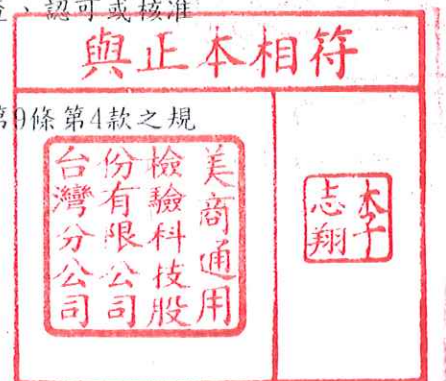 、認可或核准
與正本相符
第9條第4款之規
美商通用
檢驗科技股
份有限公司
台灣分公司
李
志翔